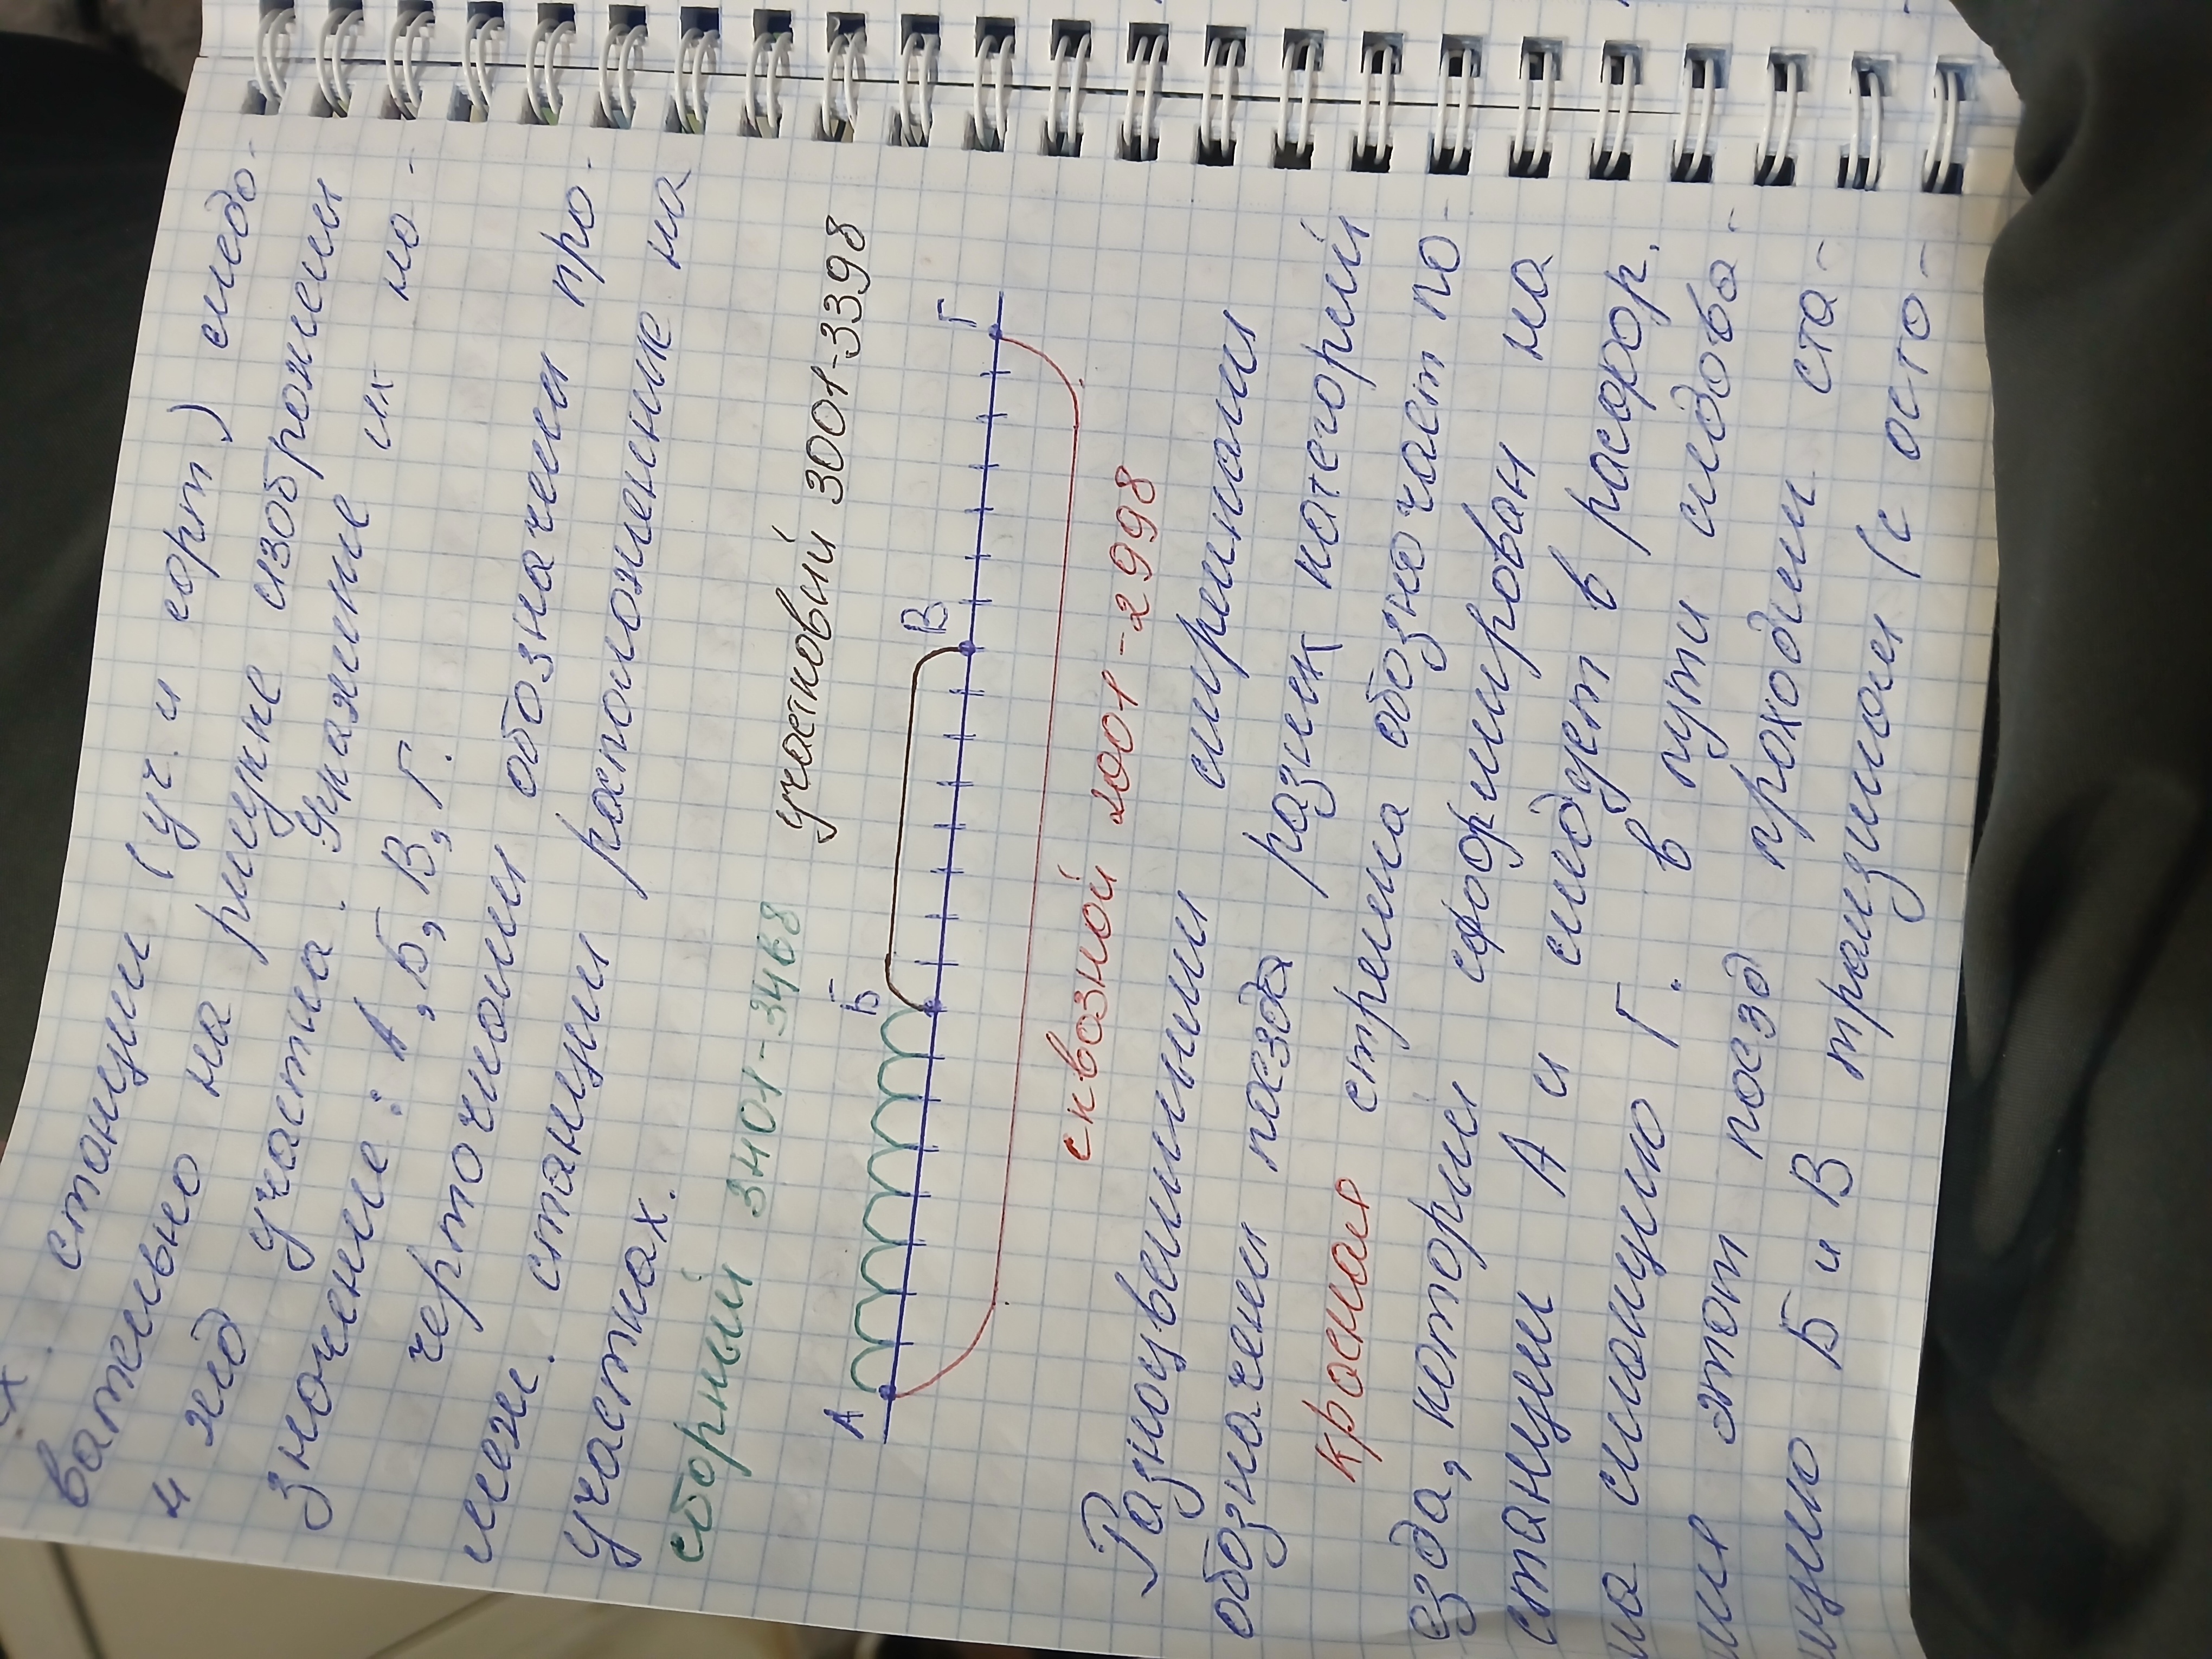 х. станции (уч. и сорт) следо-
вательно на рисунке изображены
4 жд участка. Укажите их но-
значение: А, Б, В, Г.
черточками обозначены про-
меж. станции расположенные на
участках.
сборный 3401-3468 участковый 3001-3398
А Б В Г
сквозной 2001-2998
Разноцветными стрелками
обозначены поезда разных категорий
красная стрелка обозначает по-
езда, который сформирован на
станции А и следует в расфор.
на станцию Г. В пути следова-
ния этот поезд проходит ста-
нцию Б и В транзитом (с оста-